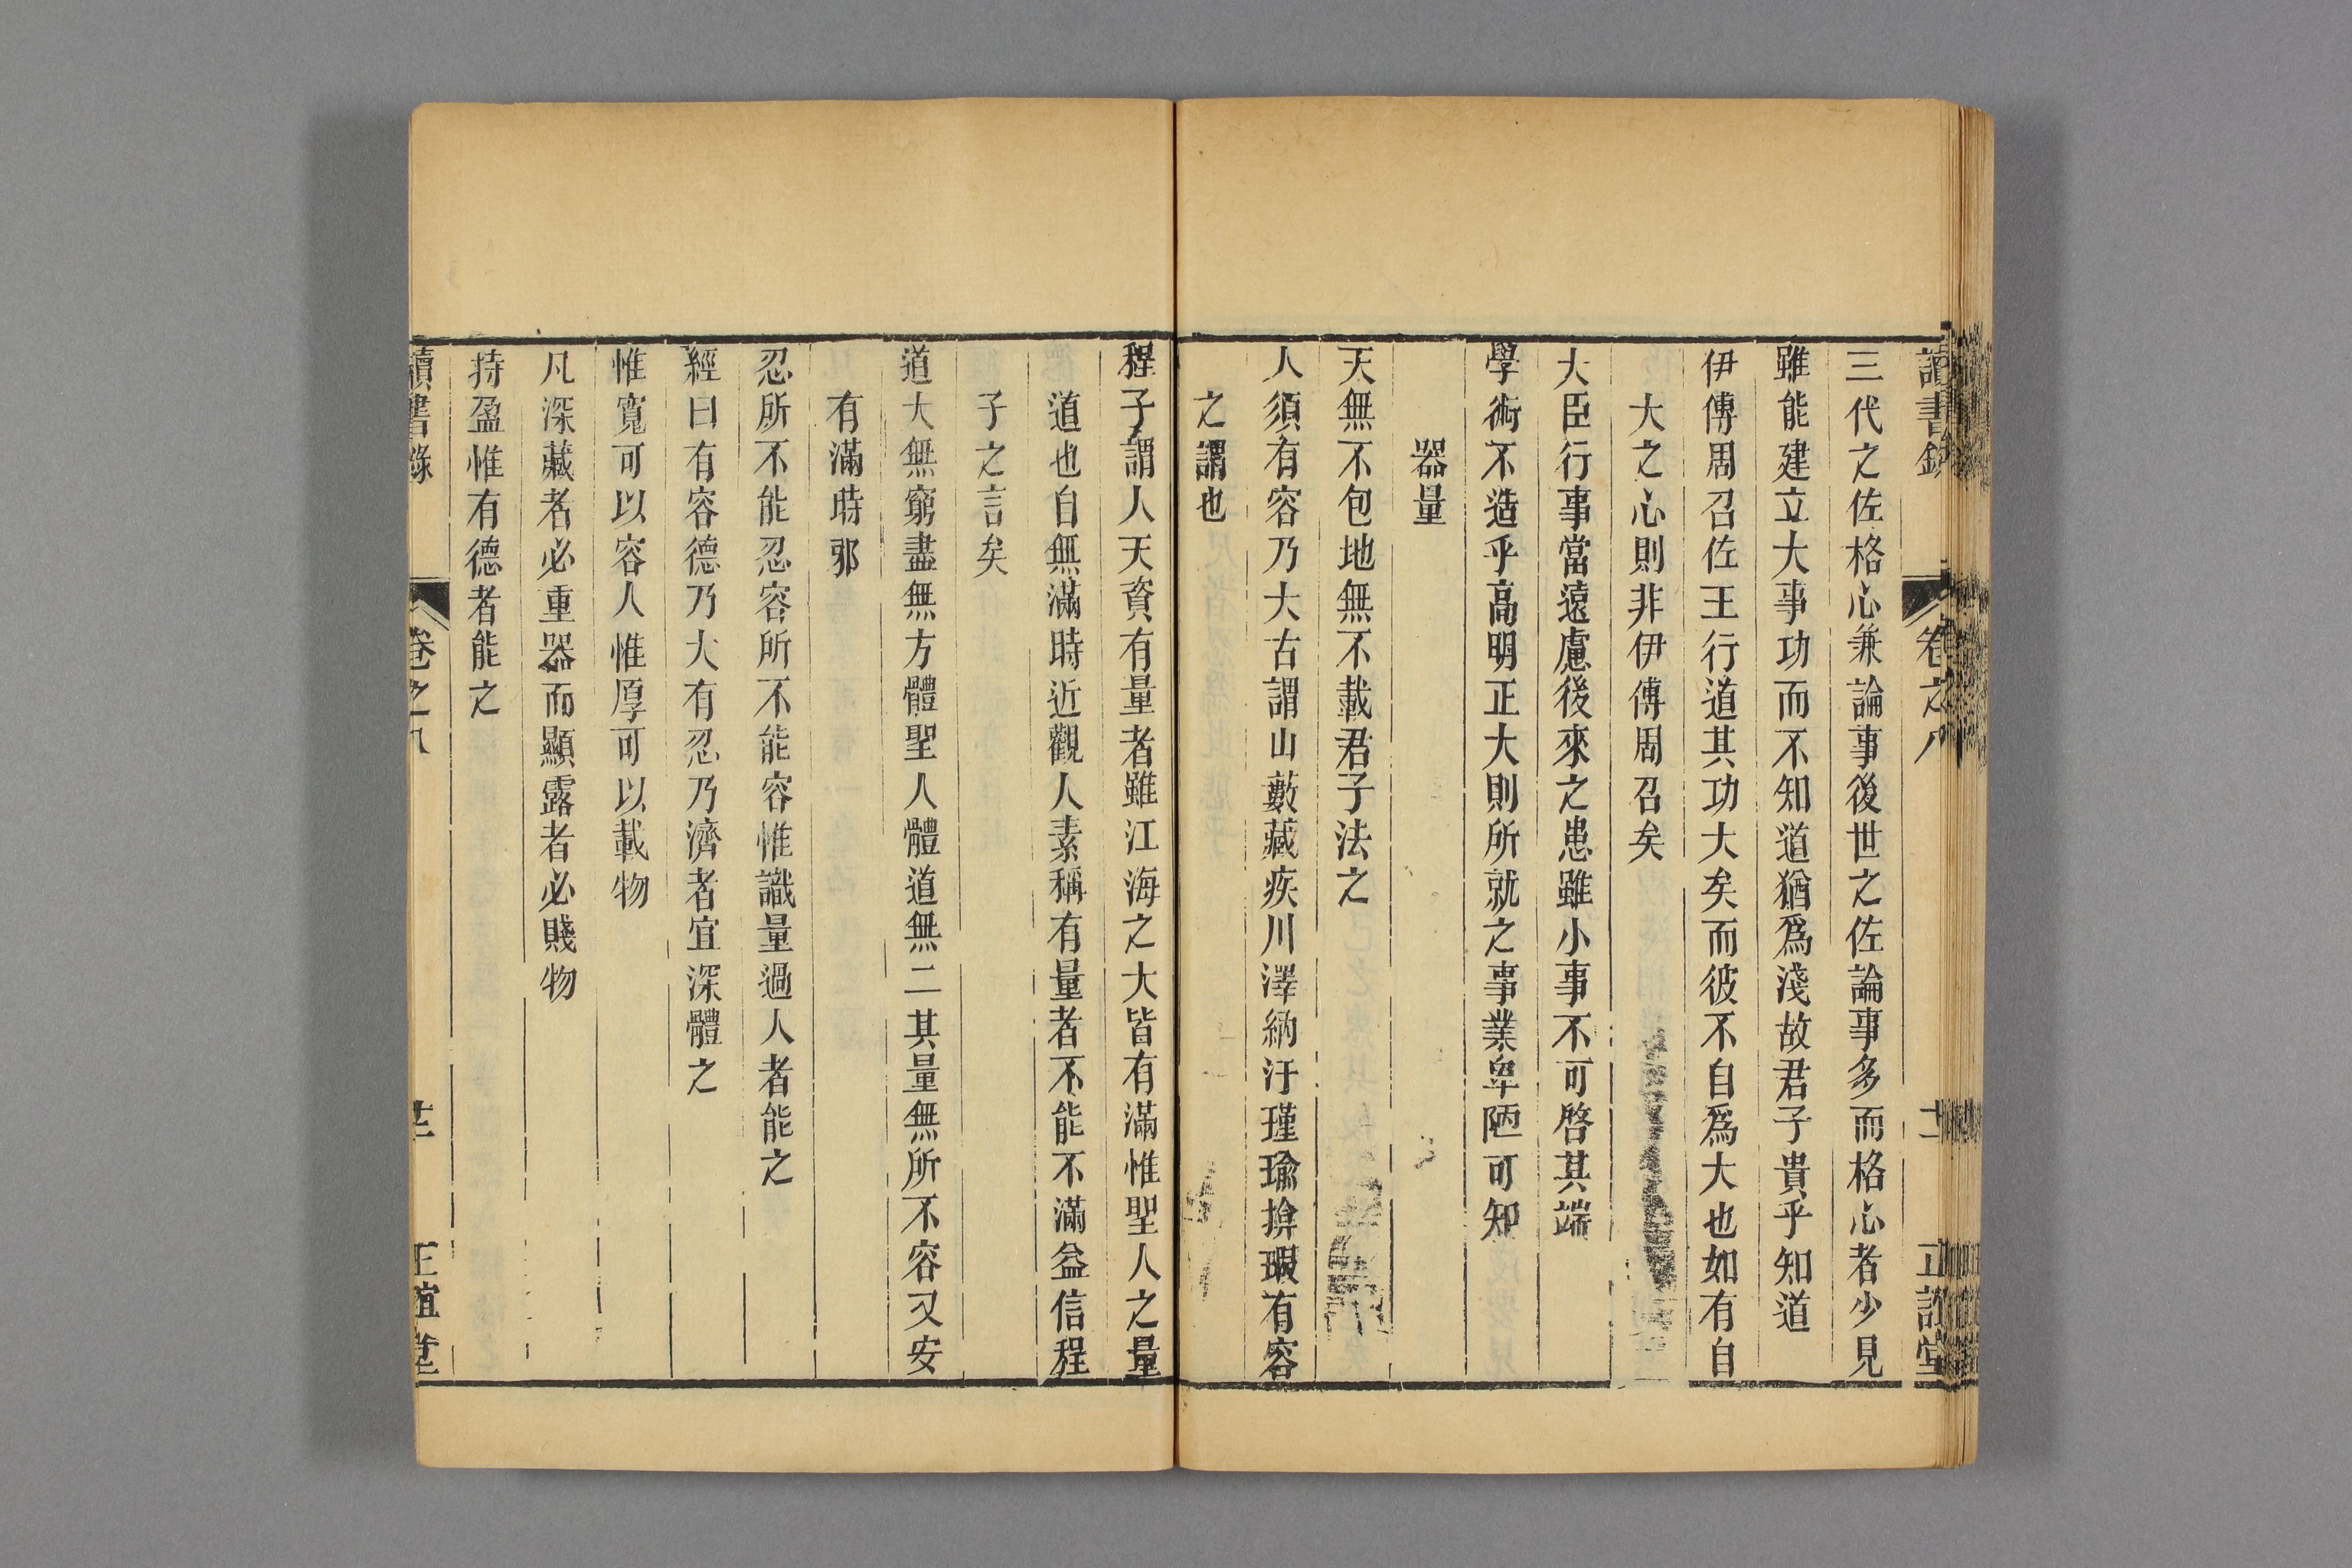 讀書錄 卷之八 正誼堂
三代之佐格心兼論事後世之佐論事多而格心者少見
雖能建立大事功而不知道猶爲淺故君子貴乎知道
伊傅周召佐王行道其功大矣而彼不自爲大也如有自
大之心則非伊傅周召矣
大臣行事當遠慮後來之患雖小事不可啓其端
學術不造乎高明正大則所就之事業卑陋可知
器量
天無不包地無不載君子法之
人須有容乃大古謂山藪藏疾川澤納汙瑾瑜揜瑕有容
之謂也
程子謂人天資有量者雖江海之大皆有滿惟聖人之量
道也自無滿時近觀人素稱有量者不能不滿益信程
子之言矣
道大無窮盡無方體聖人體道無二其量無所不容又安
有滿時邪
忍所不能忍容所不能容惟識量過人者能之
經曰有容德乃大有忍乃濟者宜深體之
惟寬可以容人惟厚可以載物
凡深藏者必重器而顯露者必賤物
持盈惟有德者能之
讀書錄 卷之八 正誼堂